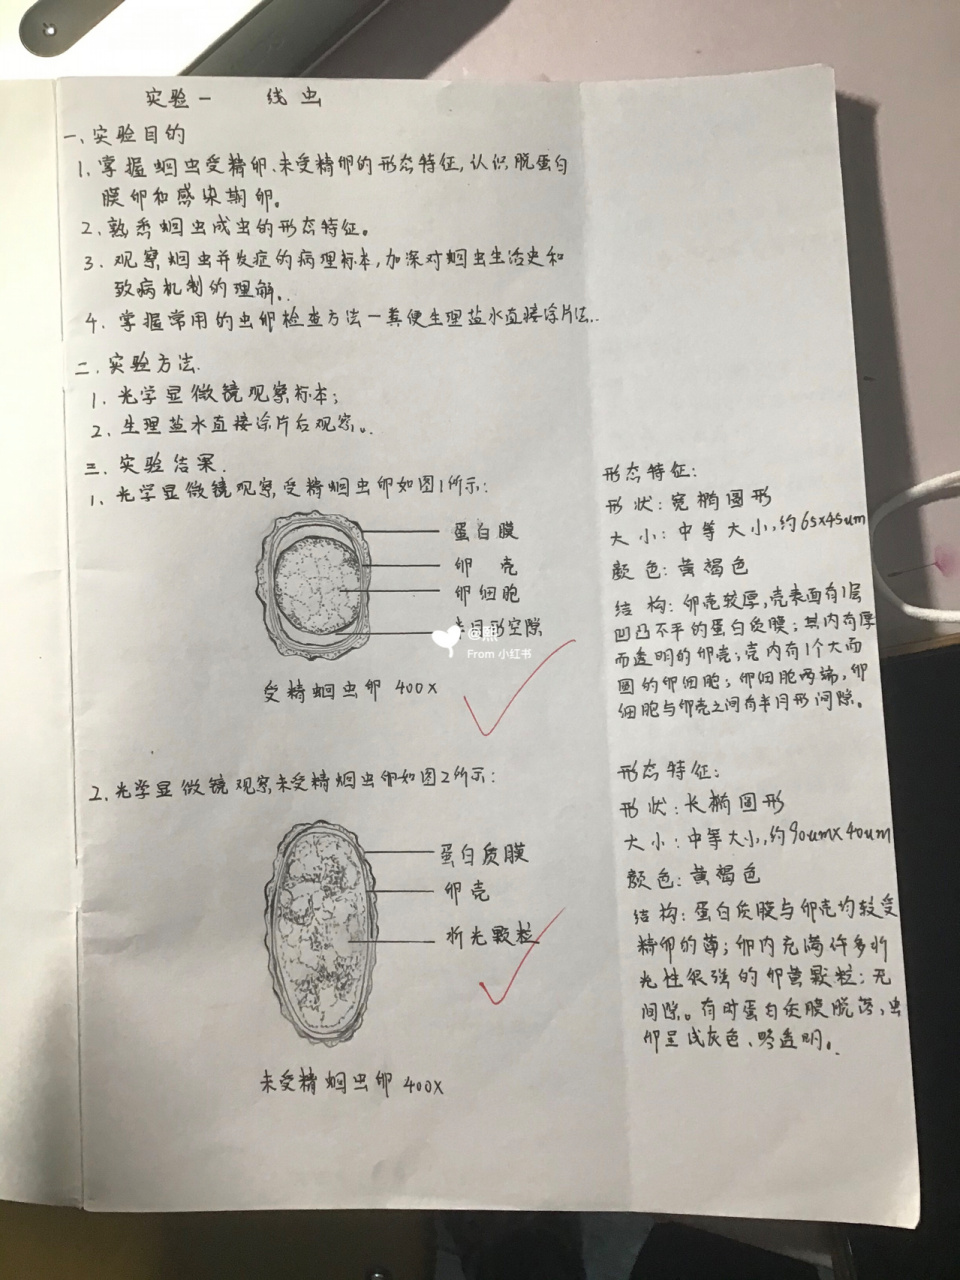 实验一 线虫
一、实验目的
1. 掌握蛔虫受精卵、未受精卵的形态特征,认识脱蛋白
膜卵和感染期卵。
2. 熟悉蛔虫成虫的形态特征。
3. 观察蛔虫并发症的病理标本,加深对蛔虫生活史和
致病机制的理解.
4. 掌握常用的虫卵检查方法—粪便生理盐水直接涂片法.
二. 实验方法.
1. 光学显微镜观察标本;
2. 生理盐水直接涂片后观察。
三. 实验结果.
1. 光学显微镜观察,受精蛔虫卵如图1所示:
蛋白膜
卵壳
卵细胞
半月形空隙
@熙
From 小红书
受精蛔虫卵 400X
形态特征:
形状: 宽椭圆形
大小: 中等大小,约65x45um
颜色: 黄褐色
结构: 卵壳较厚,壳表面有1层
凹凸不平的蛋白质膜; 其内有厚
而透明的卵壳; 壳内有1个大而
圆的卵细胞; 卵细胞两端,卵
细胞与卵壳之间有半月形间隙。
2. 光学显微镜观察未受精蛔虫卵如图2所示:
蛋白质膜
卵壳
折光颗粒
未受精蛔虫卵 400X
形态特征:
形状: 长椭圆形
大小: 中等大小,约90umx40um
颜色: 黄褐色
结构: 蛋白质膜与卵壳均较受
精卵的薄; 卵内充满许多折
光性很强的卵黄颗粒; 无
间隙。有时蛋白质膜脱落、虫
卵呈浅灰色、略透明。